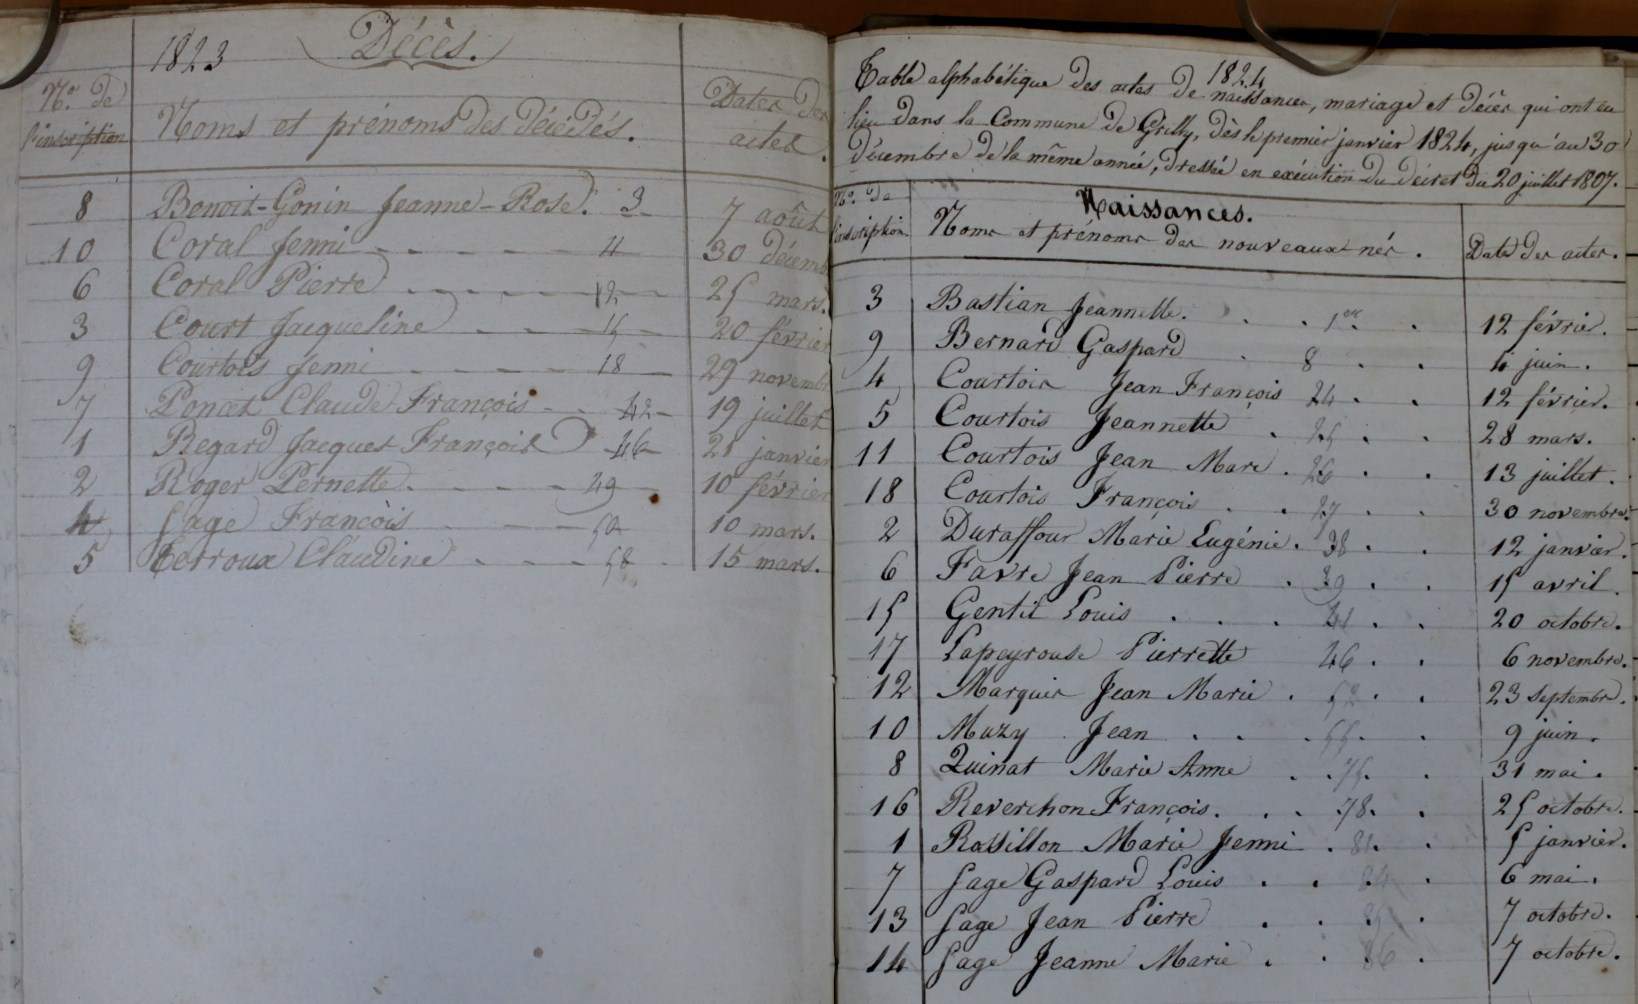 1823 Décès.
Nos. de l'inscription Noms et prénoms des décédés. Dates des actes.
8 Benoit-Gonin Jeanne-Rose. 3 7 août
10 Coral Jenni 4 30 décemb
6 Coral Pierre 12 25 mars.
3 Court Jacqueline 15 20 février
9 Courtois Jenni 18 29 novemb
7 Poncet Claude François 42 19 juillet
1 Regard Jacques François 46 21 janvier
2 Roger Pernette. 49 10 février
4 Sage François 50 10 mars.
5 Terroux Claudine 58 15 mars.
Table alphabétique des actes de naissances, mariage et décès qui ont eu
1824
lieu dans la Commune de Grilly, dès le premier janvier 1824, jusqu'au 30
décembre de la même année, dressée en exécution du décret du 20 juillet 1807.
Naissances.
Nos. de l'inscription Noms et prénoms des nouveaux nés. Date des actes.
3 Bastian Jeannette. 1er 12 février.
9 Bernard Gaspard 8 4 juin.
4 Courtois Jean François 24 12 février.
5 Courtois Jeannette 25 28 mars.
11 Courtois Jean Marc. 26 13 juillet.
18 Courtois François 27 30 novembre.
2 Duraffour Marie Eugénie. 38 12 janvier.
6 Favre Jean Pierre 39 15 avril.
15 Gentil Louis 41 20 octobre.
17 Lapeyrouse Pierrette 46 6 novembre.
12 Marquis Jean Marie 52 23 septembre.
10 Muzy Jean 55 9 juin.
8 Quinat Marie Anne 75 31 mai.
16 Reverchon François. 78 25 octobre.
1 Rossillon Marie Jenni 81 5 janvier.
7 Sage Gaspard Louis 84 6 mai.
13 Sage Jean Pierre 85 7 octobre.
14 Sage Jeanne Marie 86 7 octobre.